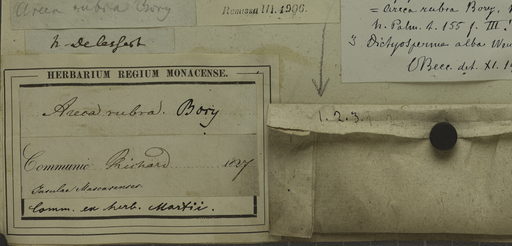 Areca rubra Bory
Remissa III. 1906.
= Areca rubra Bory,
h. Palm. t. 155 f. III
3 Dictyosperma alba
OBecc. det. XI.
h. delessert
HERBARIUM REGIUM MONACENSE.
Areca rubra. Bory
Communic Richard 1827
Insulae Mascarenses
Comm. ex herb. Martii.
1. 2. 3.